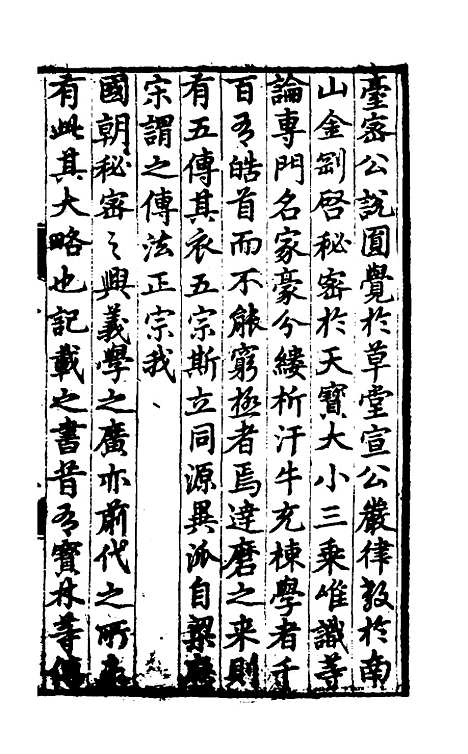 臺密公說圓覺於草堂宣公嚴律教於南
山金剛啓秘密於天寶大小三乘唯識等
論專門名家豪分縷析汗牛充棟學者千
百有皓首而不能窮極者焉達磨之來則
有五傳其衣五宗斯立同源異派自梁
宋謂之傳法正宗我
國朝秘密之興義學之廣亦前代之所
有此其大略也記載之書昔有寳林等傳